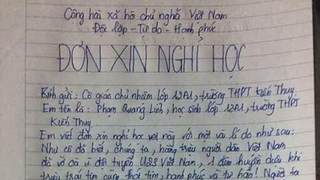 Cộng hoà xã hội chủ nghĩa Việt Nam
Độc lập - Tự do - Hạnh phúc
ĐƠN XIN NGHỈ HỌC
Kính gửi: Cô giáo chủ nhiệm lớp 12A1, trường THPT Kiến Thuỵ
Em tên là: Phạm Quang Linh, học sinh lớp 12A1, trường THPT
Kiến Thuỵ
Em viết đơn xin nghỉ học này với một vài lí do như sau:
Như cô đã biết, chúng ta, hàng triệu người dân Việt Nam
đã và cả đội tuyển U23 Việt Nam, đã
triệu trái tim cùng thổn thức, hạnh phúc và tự hào! Người ta